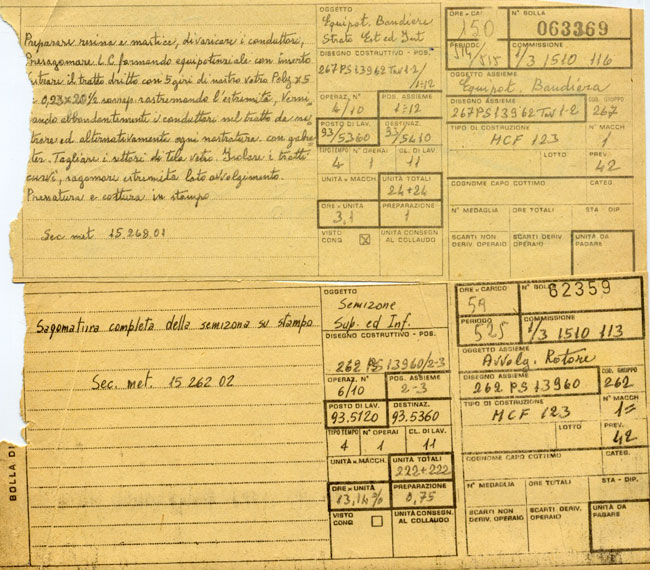 Preparare resina e mastice, divaricare i conduttori,
Presagomare L.C. formando equipotenziale con inserto
nitrare il tratto dritto con 5 giri di nastro vetro Polyg x 5
0,23 x 20 ½ sovrap. rastremando l'estremità, Verni
ando abbondantemente i conduttori nel tratto da na
trare ed alternativamente ogni nastratura con
ter. Tagliare i settori di tela vetro. Isolare i tratti
curvi, sagomare estremità lato avvolgimento.
Pressatura e cottura in stampo
Sec. mat 15.268.01
OGGETTO
Equipot. Bandiere
Strato Est. ed Int
DISEGNO COSTRUTTIVO - POS.
267 PS 13962 Tav 1-2/1÷12
OPERAZ. N° POS. ASSIEME
4/10 1÷12
POSTO DI LAV. DESTINAZ.
93/5360 93/5410
TIPO TEMPO N° OPERAI CL. DI LAV.
4 1 11
UNITÀ x MACCH. UNITÀ TOTALI
24+24
ORE x UNITÀ PREPARAZIONE
3,1 1
VISTO CONG UNITÀ CONSEGN. AL COLLAUDO
ORE A CARICO N° BOLLA
150 063369
PERIODO COMMISSIONE
514/515 1/3 1510 116
OGGETTO ASSIEME
Equipot. Bandiera
DISEGNO ASSIEME COD. GRUPPO
267 PS 13962 Tav 1-2 267
TIPO DI COSTRUZIONE N° MACCH
MCF 123 1
LOTTO PREV.
42
COGNOME CAPO COTTIMO CATEG.
N° MEDAGLIA ORE TOTALI STA - DIP.
SCARTI NON DERIV. OPERAIO SCARTI DERIV. OPERAIO UNITÀ DA PAGARE
BOLLA DI
Sagomatura completa della semizona su stampo
Sec. met. 15 262 02
OGGETTO
Semizone
Sup. ed Inf.
DISEGNO COSTRUTTIVO - POS.
262 PS 13960/2-3
OPERAZ. N° POS. ASSIEME
6/10 2-3
POSTO DI LAV. DESTINAZ.
93.5120 93.5360
TIPO TEMPO N° OPERAI CL. DI LAV.
4 1 11
UNITÀ x MACCH. UNITÀ TOTALI
222+222
ORE x UNITÀ PREPARAZIONE
13,14% 0,75
VISTO CONG UNITÀ CONSEGN. AL COLLAUDO
ORE A CARICO N° BOLLA
59 62359
PERIODO COMMISSIONE
525 1/3 1510 113
OGGETTO ASSIEME
Avvolg. Rotore
DISEGNO ASSIEME COD. GRUPPO
262 PS 13960 262
TIPO DI COSTRUZIONE N° MACCH
MCF 123 1=
LOTTO PREV.
42
COGNOME CAPO COTTIMO CATEG.
N° MEDAGLIA ORE TOTALI STA - DIP.
SCARTI NON DERIV. OPERAIO SCARTI DERIV. OPERAIO UNITÀ DA PAGARE